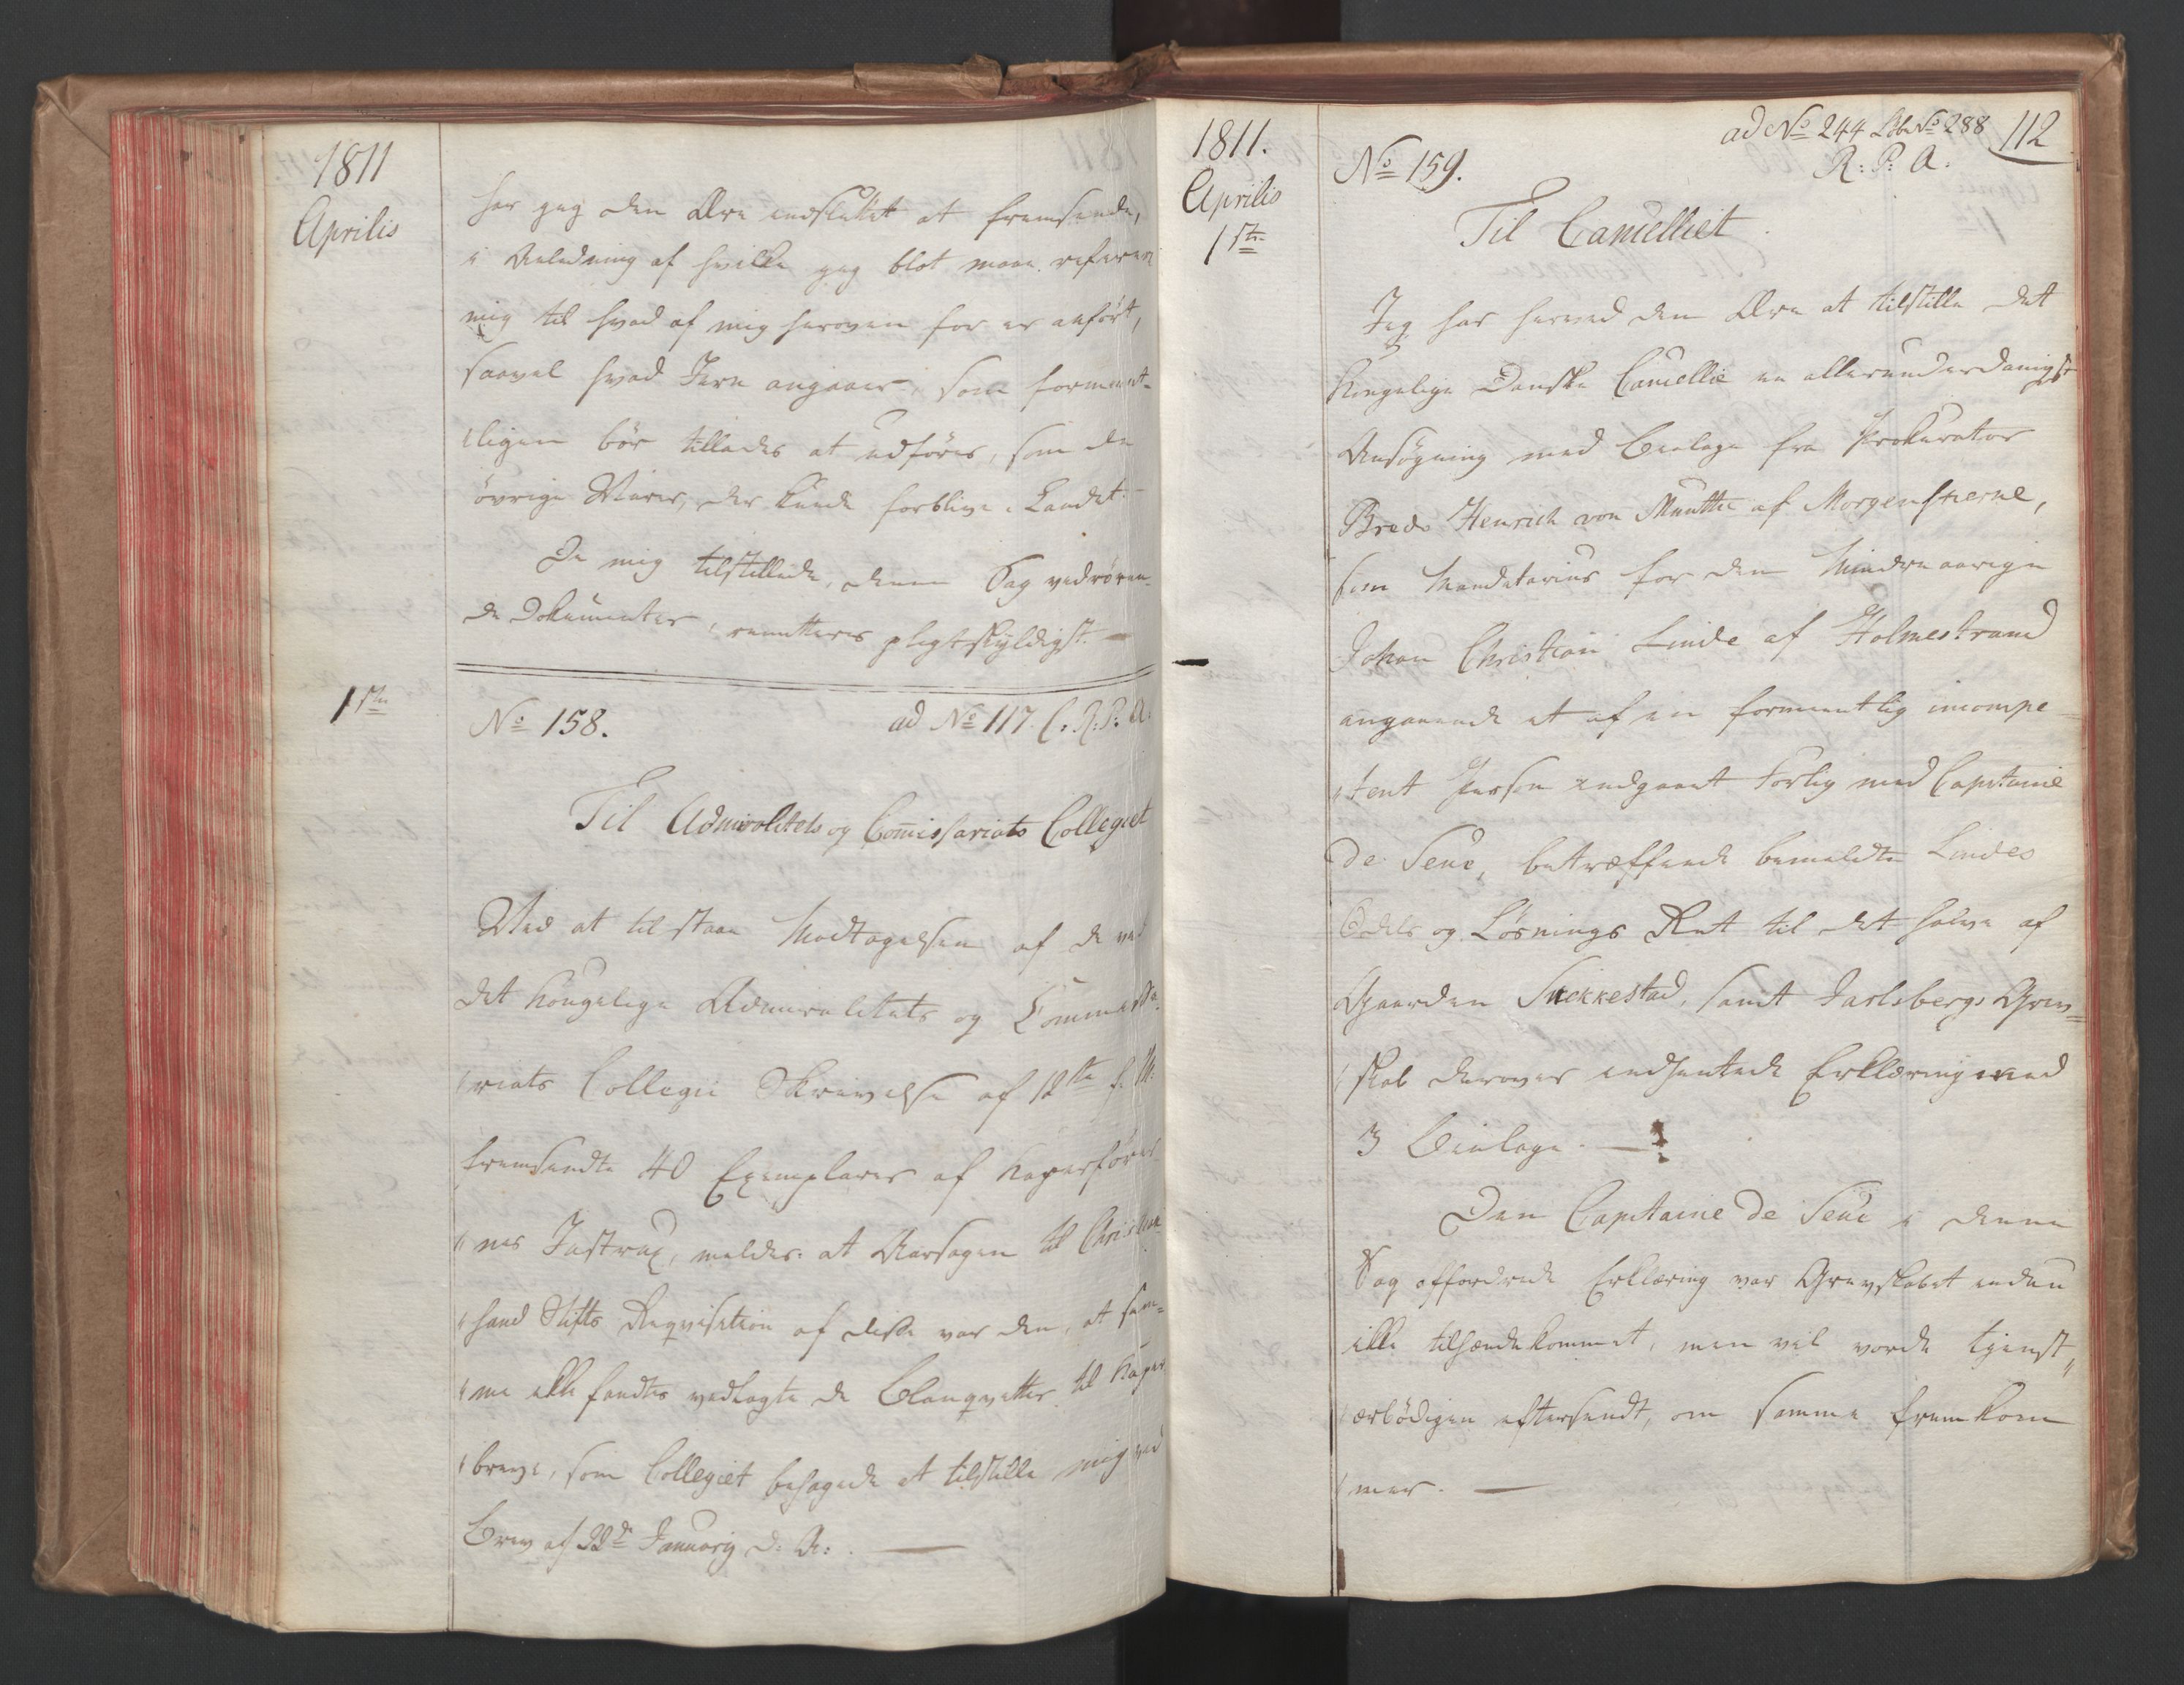 1811
Aprilis
har jeg den Ære indsluttet at fremsende,
i Anledning af hvilke jeg blot maae referere
mig til hvad af mig herover før er anført,
saavel hvad Jern angaaer, som forment-
ligen bør tillades at udføres, som de
øvrige Varer, der burde forblive i Landet.
De mig tilstillede, denne Sag vedrøren-
de Dokumenter, remitteres pligtskyldigst. —
1ste
No 158.
ad No 117. C. R: P: A:
Til Admiralitets og Comissariats Collegiet
Ved at tilstaae Modtagelsen af de ved
det kongelige Admiralitets og Commissa-
riats Collegii Skrivelse af 12te f. M:
fremsendte 40 Exemplarer af Kaperføre-
nes Instrux, meldes: at Aarsagen til Christian-
sand Stifts Reqvisition af disse var den, at sam-
me ikke fandtes vedlagte de Blanqvetter til Kaper-
breve, som Collegiet behagede at tilstille mig ved
Brev af 22de Januarii d: A: . —
1811.
Aprilis
1ste
No 159.
ad No 244 Lbb No 288
R: P: A.
112
Til Cancelliet.
Jeg har herved den Ære at tilstille det
Kongelige Danske Cancellie en allerunderdanigst
Ansøgning med Beilage fra Prokurator
Bredo Henrich von Munthe af Morgenstierne,
som Mandatarius for den Mindreaarige
Johan Christian Linde af Holmestrand
angaaende et af en formeentlig incompe-
tent Person indgaaet Forlig med Capitaine
de Seue, betræffende bemeldte Lindes
Odels og Løsnings Ret til det halve af
Gaarden Snekkestad, samt Jarlsbergs Grev-
skab derover indhentede Erklæring med
3 Beilage. —
Den Capitaine de Seue i denne
Sag affordrede Erklæring var Grevskabet endnu
ikke tilhændekommet, men vil vorde tienst-
ærbødigen eftersendt, om samme fremkom-
mer. —